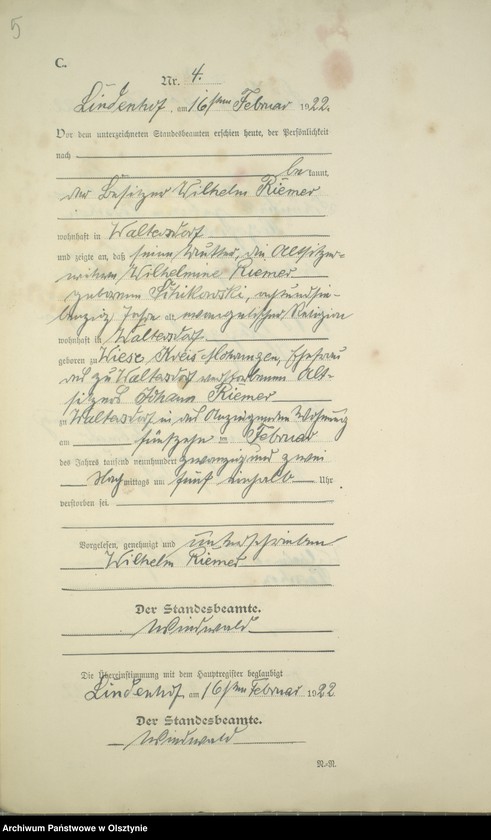 5
C.
Nr. 4.
Lindenhof, am 16ten Februar 1922.
Vor dem unterzeichneten Standesbeamten erschien heute, der Persönlichkeit
nach
bekannt,
der Besitzer Wilhelm Riemer
wohnhaft in Waltersdorf
und zeigte an, daß seine Mutter, die Altsitzer-
witwe Wilhelmine Riemer
geborene
Jahre alt, evangelischer Religion
wohnhaft in Waltersdorf
geboren zu Wiese Kreis Mohrungen, Ehefrau
des zu Waltersdorf verstorbenen Alt-
sitzers Johann Riemer
zu Waltersdorf in der Wohnung
am fünfzehn ten Februar
des Jahres tausend neunhundert zwanzig und zwei
Nachmittags um fünf einhalb Uhr
verstorben sei.
Vorgelesen, genehmigt und unterschrieben
Wilhelm Riemer
Der Standesbeamte.
Windwald
Die Übereinstimmung mit dem Hauptregister beglaubigt
Lindenhof, am 16ten Februar 1922
Der Standesbeamte.
Windwald
N.-R.
Archiwum Państwowe w Olsztynie